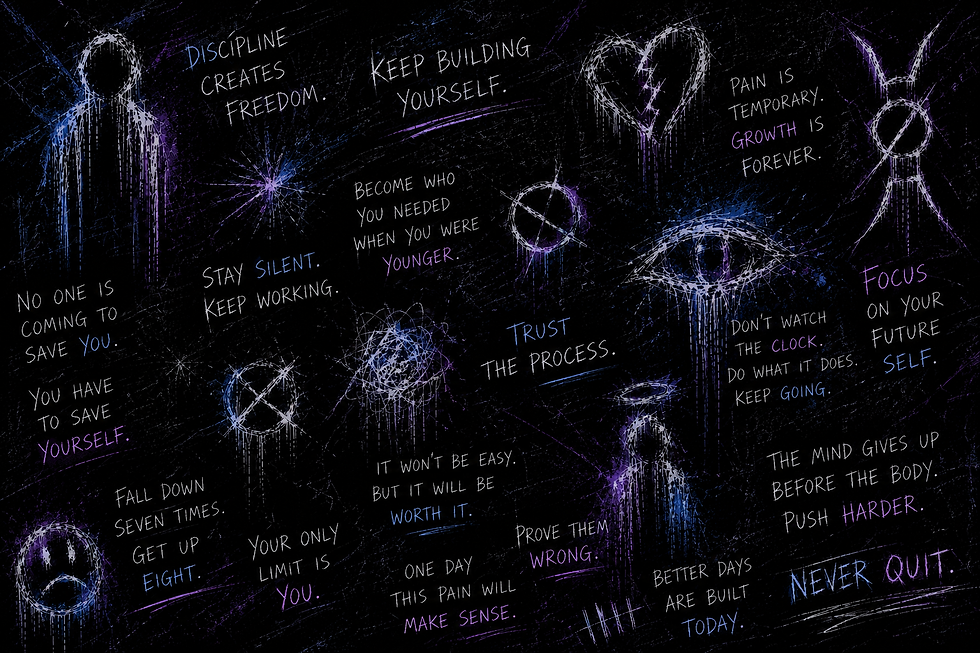 DISCIPLINE
CREATES
FREEDOM.
KEEP BUILDING
YOURSELF.
PAIN IS
TEMPORARY.
GROWTH IS
FOREVER.
BECOME WHO
YOU NEEDED
WHEN YOU WERE
YOUNGER.
STAY SILENT.
KEEP WORKING.
NO ONE IS
COMING TO
SAVE YOU.
TRUST
THE PROCESS.
DON'T WATCH
THE CLOCK.
DO WHAT IT DOES.
KEEP GOING.
FOCUS
ON YOUR
FUTURE
SELF.
YOU HAVE
TO SAVE
YOURSELF.
FALL DOWN
SEVEN TIMES.
GET UP
EIGHT.
YOUR ONLY
LIMIT IS
YOU.
IT WON'T BE EASY.
BUT IT WILL BE
WORTH IT.
PROVE THEM
WRONG.
THE MIND GIVES UP
BEFORE THE BODY.
PUSH HARDER.
ONE DAY
THIS PAIN WILL
MAKE SENSE.
BETTER DAYS
ARE BUILT
TODAY.
NEVER QUIT.